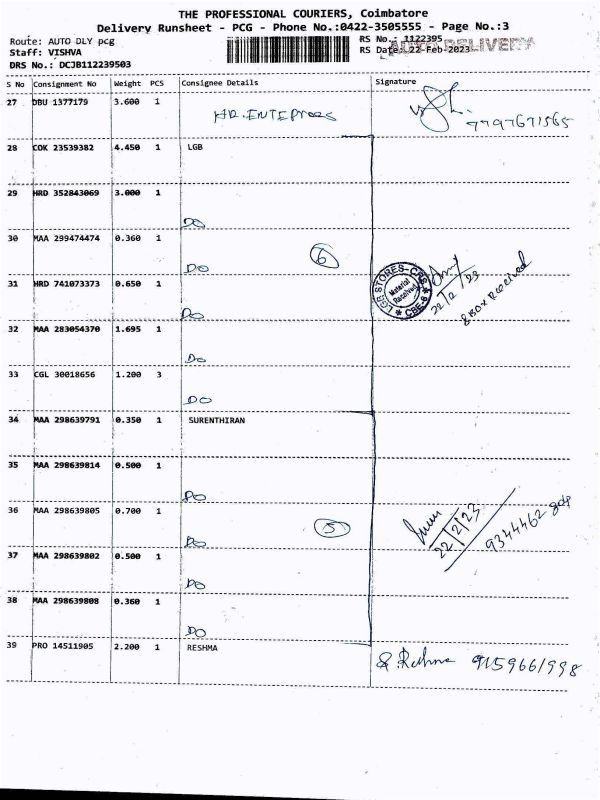 THE PROFESSIONAL COURIERS, Coimbatore
Delivery Runsheet - PCG - Phone No.:0422-3505555 - Page No.:3
Route: AUTO DLY pcg
RS No.: 1122395
AUTO DELIVERY
Staff: VISHVA
RS Date: 22-Feb-2023
DRS No.: DCJB112239503
S No Consignment No Weight PCS Consignee Details Signature
27 DBU 1377179 3.600 1
HR.ENTEPRCES
7797671565
28 COK 23539382 4.450 1 LGB
29 HRD 352843069 3.000 1
DO
30 MAA 299474474 0.360 1
DO
6
31 HRD 741073373 0.650 1
DO
LGB STORES-CPS
Material
Received
CBE-6
22/2/23
8 Box Received
32 MAA 283054370 1.695 1
DO
33 CGL 30018656 1.200 3
DO
34 MAA 298639791 0.350 1 SURENTHIRAN
35 MAA 298639814 0.500 1
DO
36 MAA 298639805 0.700 1
DO
5
22/2/23
9344462
37 MAA 298639802 0.500 1
DO
38 MAA 298639808 0.360 1
DO
39 PRO 14511905 2.200 1 RESHMA
9159661998